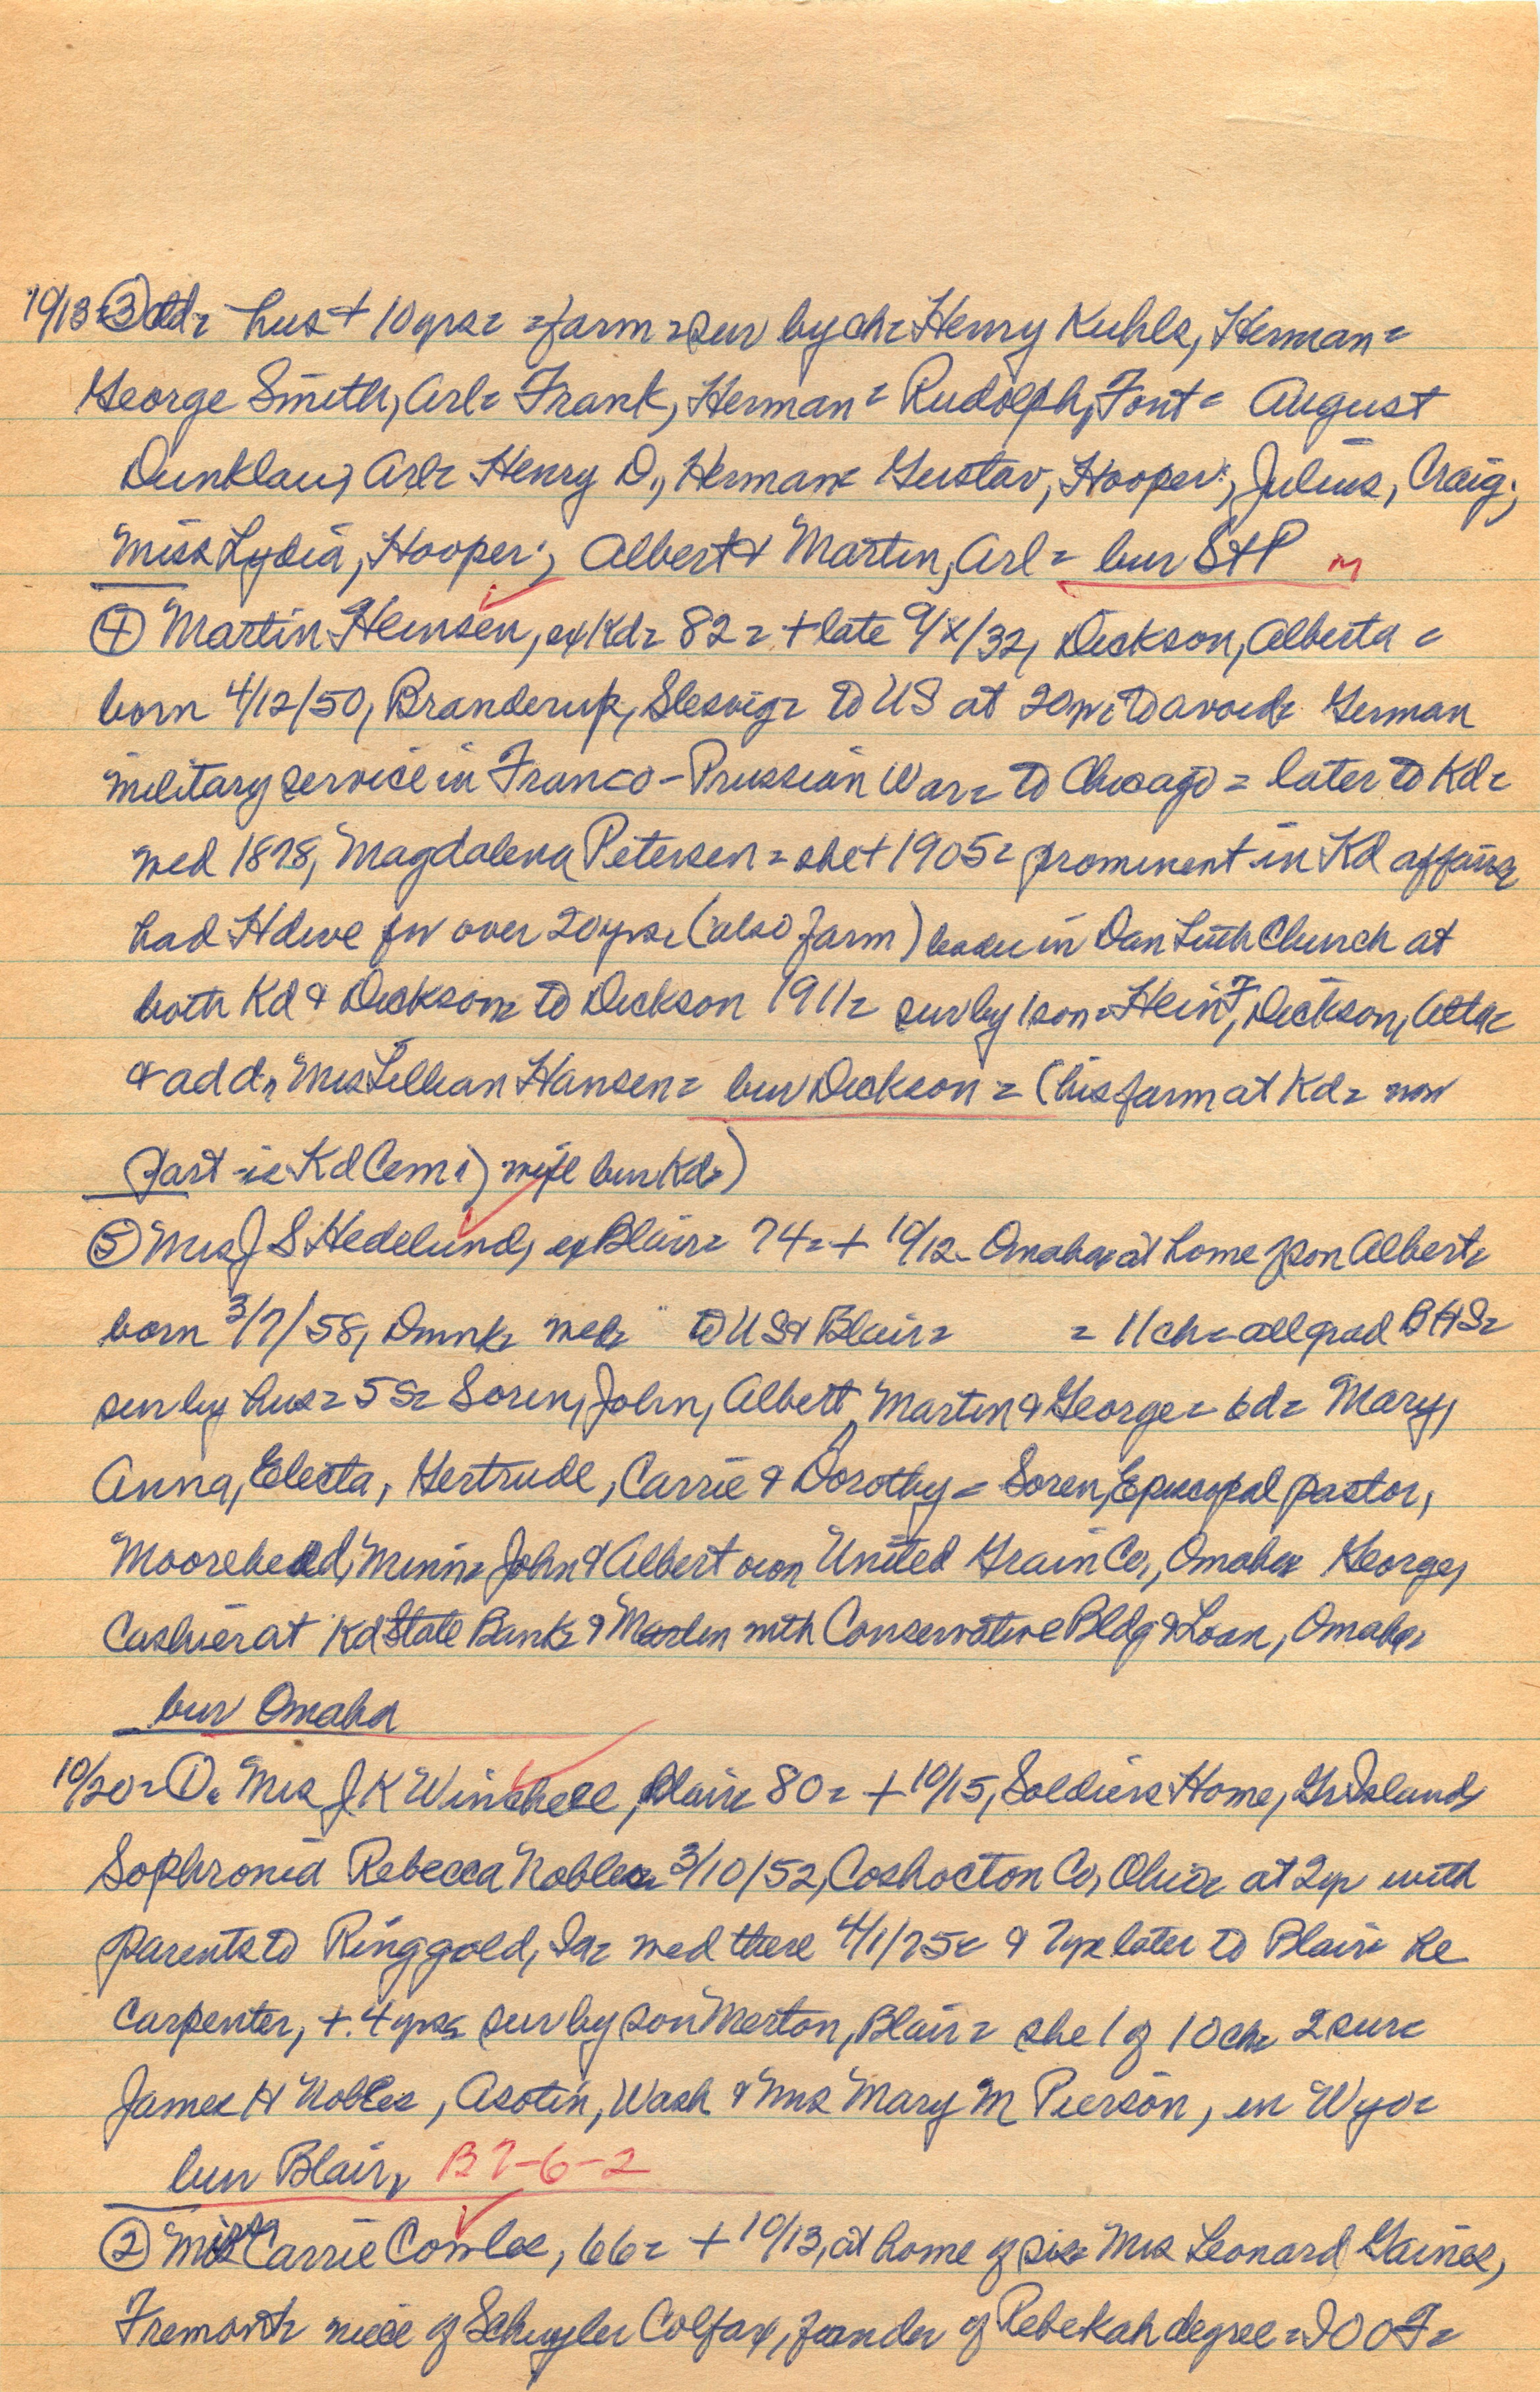 10/13 = ③ cld = hus + 10 yrs = = farm = sur by ch = Henry Kuhls, Herman =
George Smith, Arl = Frank, Herman = Rudolph, Font = August
Dunklau, Arl = Henry D., Herman = Gustav, Hooper; Julius, Craig;
Miss Lydia, Hooper; Albert & Martin, Arl = bur St P m
④ Martin Heinsen, ex Kd = 82 = + late 9/x/32, Dickson, Alberta =
born 4/12/50, Branderup, Slesvig = to US at 20 yr = to avoid = German
military service in Franco-Prussian War = to Chicago = later to Kd =
wed 1878, Magdalena Petersen = she + 1905 = prominent in Kd affairs
had Hdwe for over 20 yrs = (also farm) in Dan Luth Church at
both Kd & Dickson = to Dickson 1911 = sur by 1 son = Hein F, Dickson, Alta =
& ad d, Mrs Lillian Hansen = bur Dickson = (his farm at Kd = now
part is Kd Cem;) wife bur Kd =)
⑤ Mrs J S Hedelund, ex Blair = 74 = + 10/12 - Omaha = at home of son Albert =
born 3/7/58, Dnmk = wed = " to US & Blair = = 11 ch = all grad BHS =
sur by hus = 5 S = Soren, John, Albert, Martin & George = 6 d = Mary,
Anna, Electa, Gertrude, Carrie & Dorothy = Soren, Episcopal pastor,
Moorehead, Minn = John & Albert own United Grain Co., Omaha = George,
Cashier at Kd State Bank = & Martin with Conservative Bldg & Loan, Omaha =
bur Omaha
10/20 = ①. Mrs J K Winchell, Blair = 80 = + 10/15, Soldiers Home, Gr Island,
Sophronia Rebecca Nobles = 3/10/52, Coshocton Co, Ohio = at 2 yr with
parents to Ringgold, Ia = wed there 4/1/75 = & 7 yrs later to Blair = he
Carpenter, + 4 yrs = sur by son Merton, Blair = she 1 of 10 ch = 2 sur =
James H Nobles, Asotin, Wash & Mrs Mary M Pierson, in Wyo =
bur Blair, B 7-6-2
② Miss Carrie Cowles, 66 = + 10/13, at home of sis = Mrs Leonard Gaines,
Fremont = niece of Schuyler Colfax, founder of Rebekah degree = IOOF =